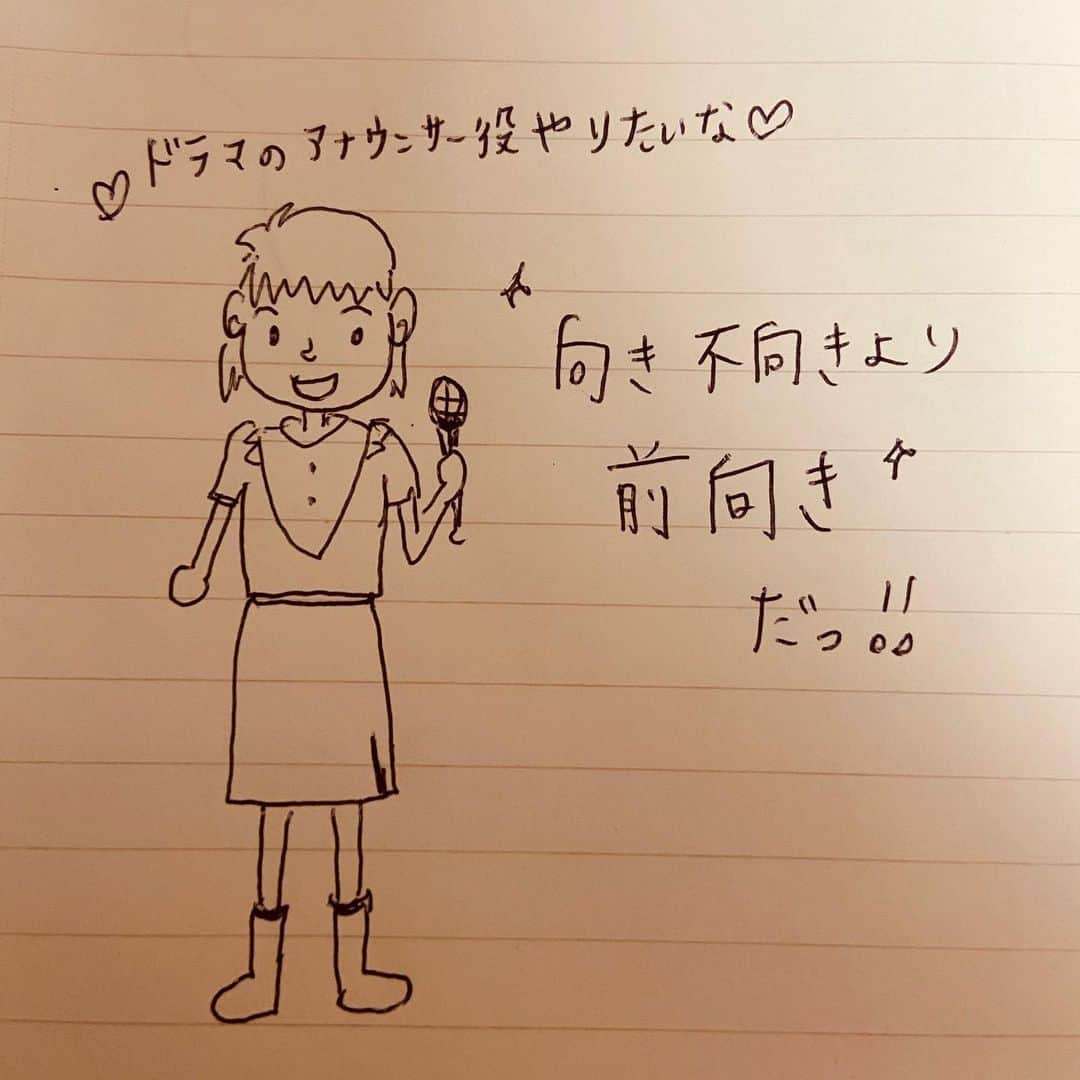 ♡ドラマのアナウンサー役やりたいな♡
向き不向きより
前向き
だっ!!